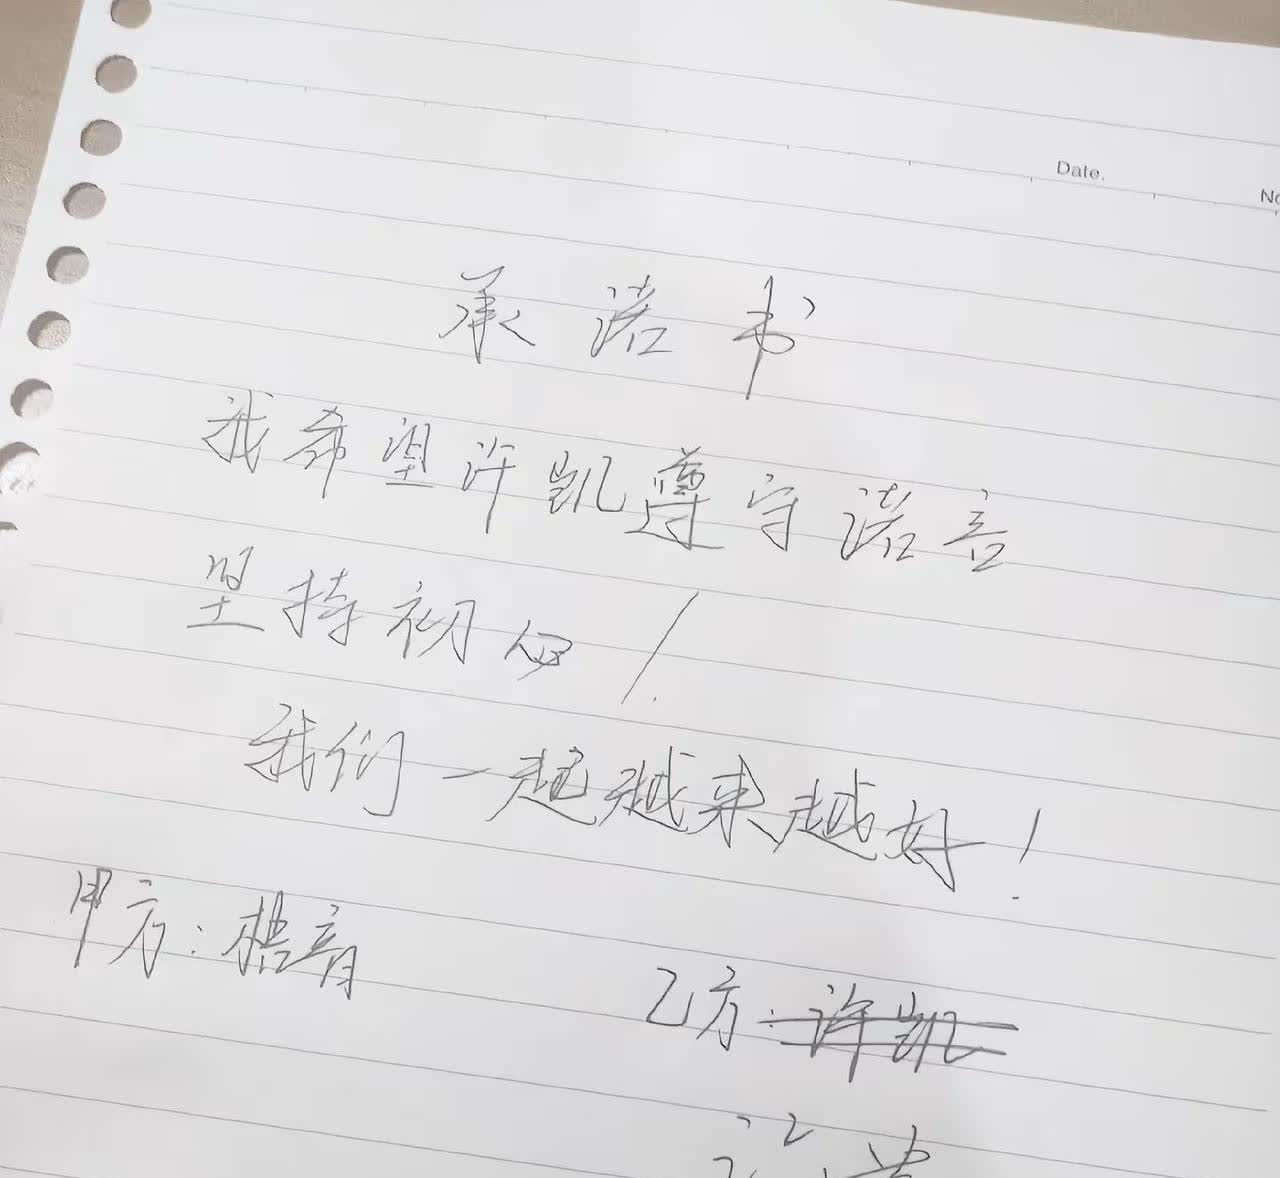 Date.
No
承诺书
我希望许凯遵守诺言
坚持初心!
我们一起越来越好!
甲方:
乙方:许凯